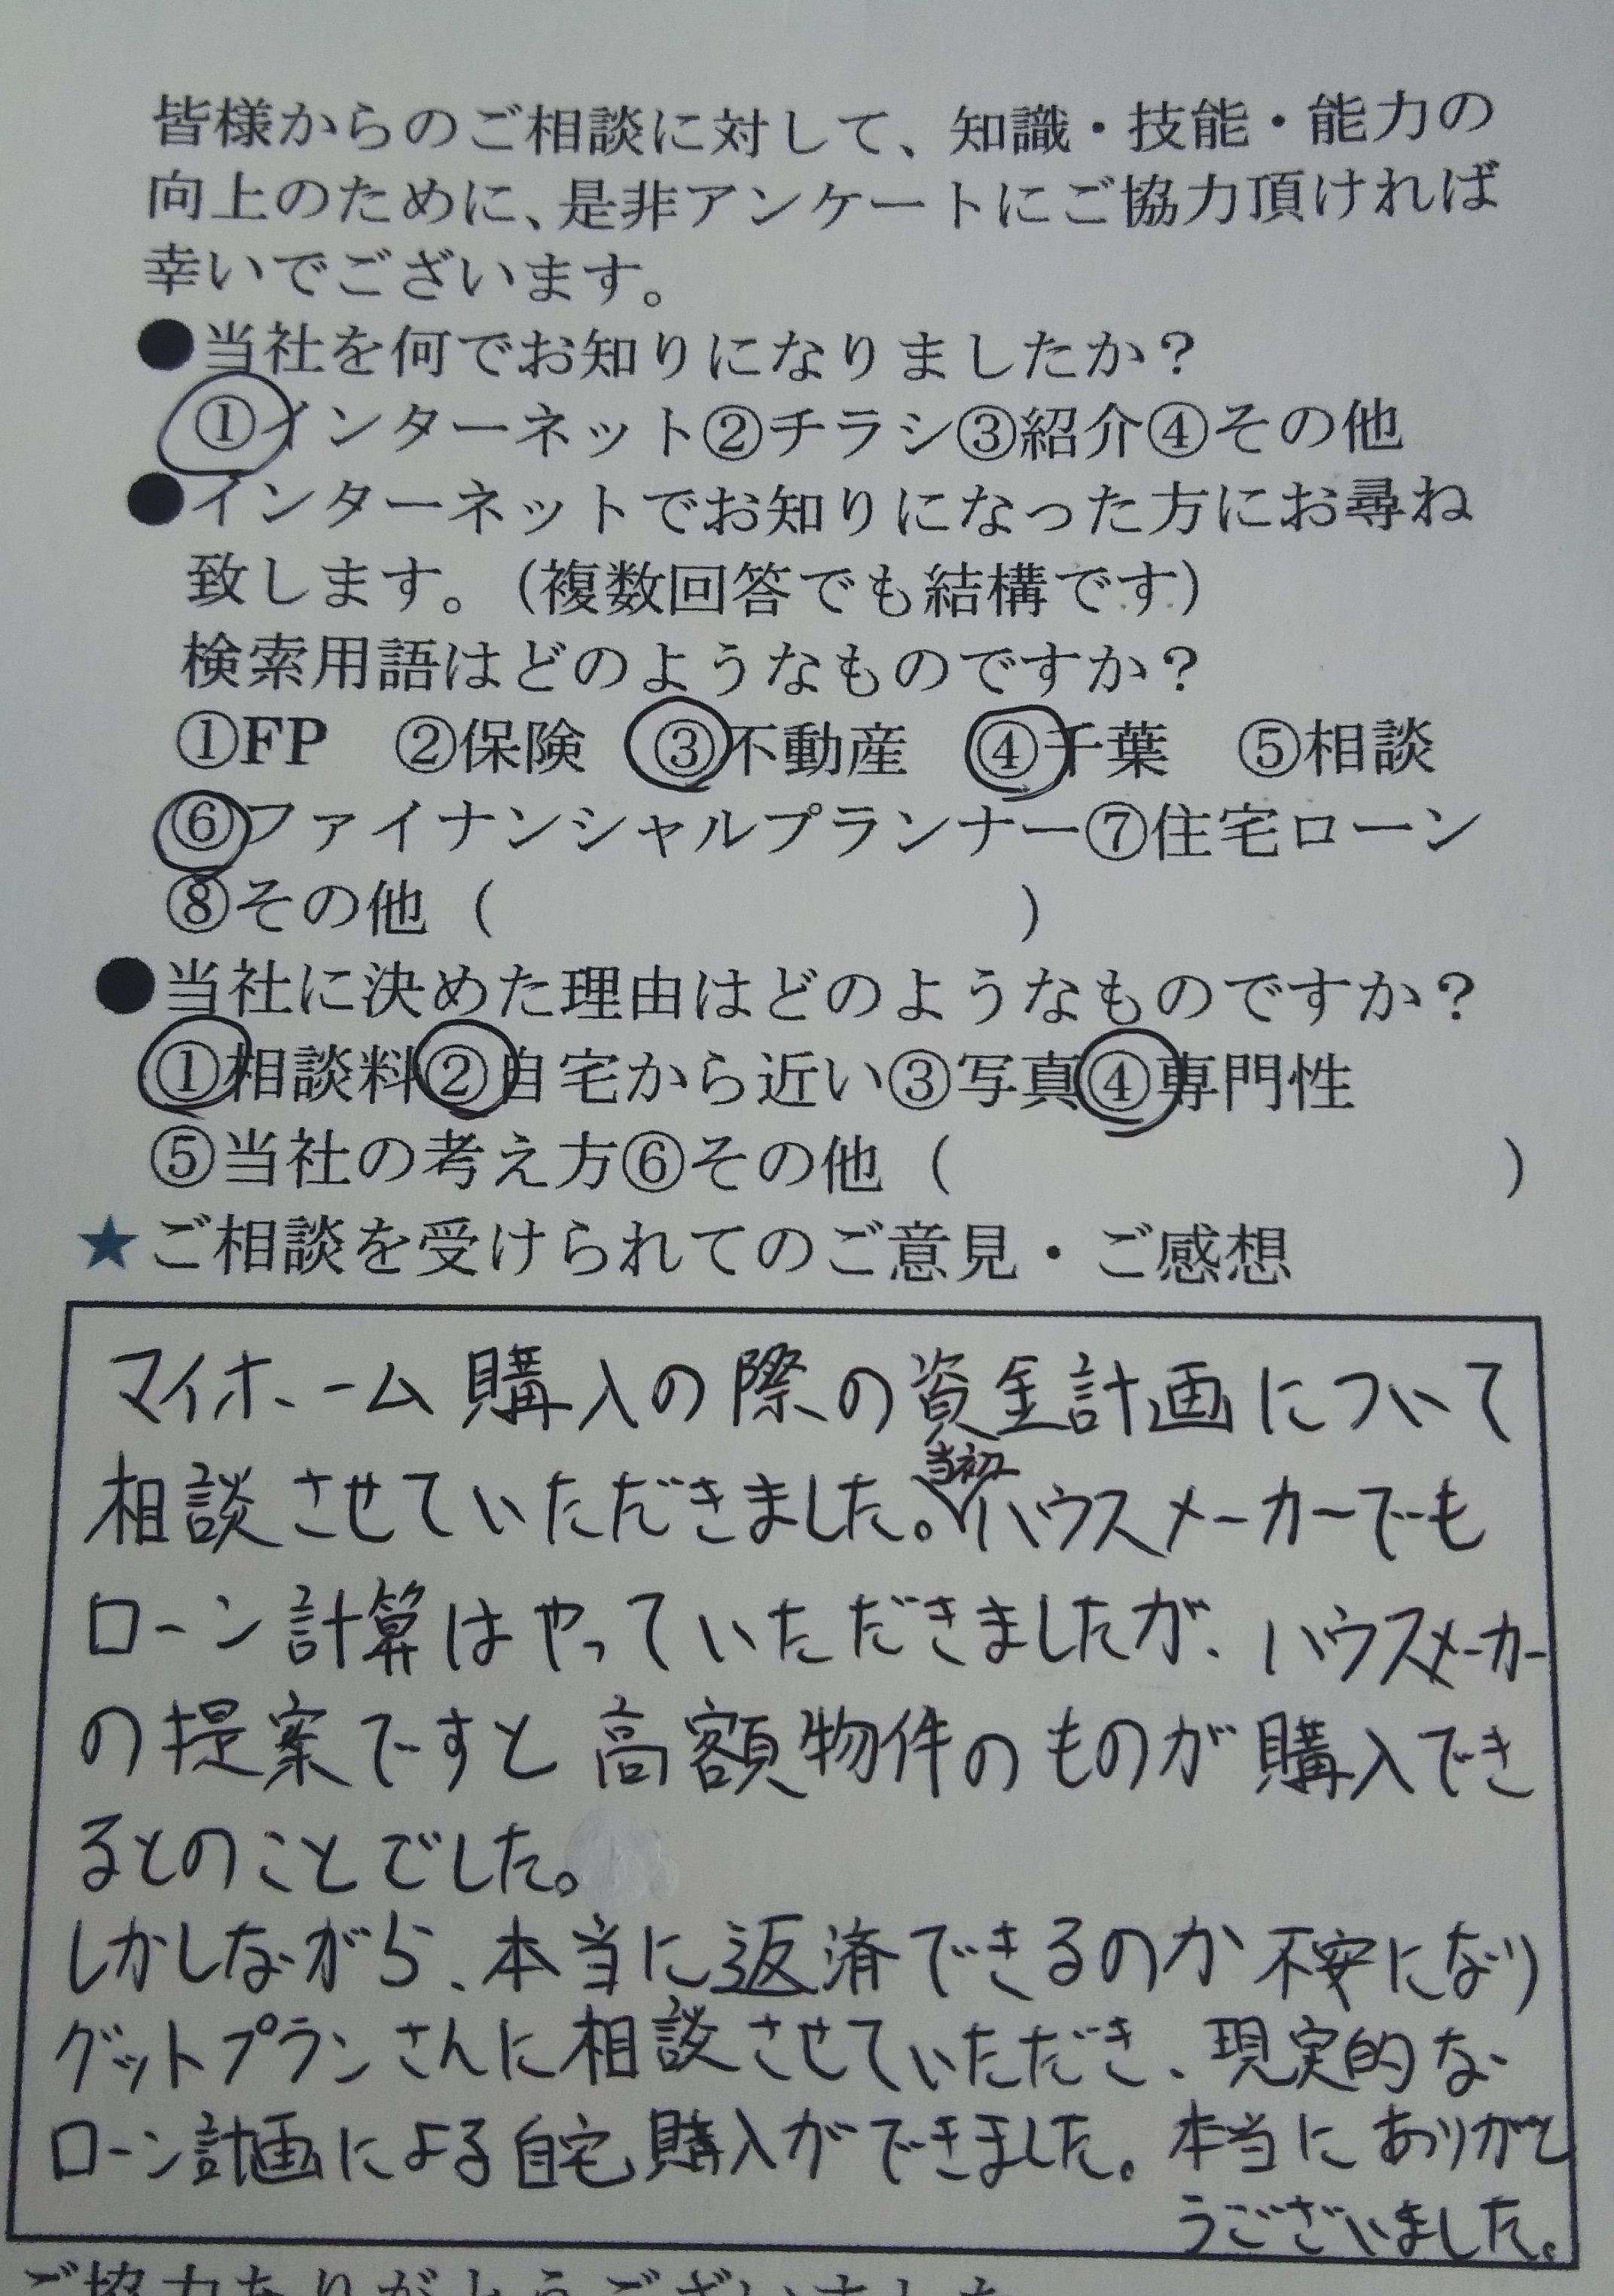 皆様からのご相談に対して、知識・技能・能力の
向上のために、是非アンケートにご協力頂ければ
幸いでございます。
●当社を何でお知りになりましたか？
①インターネット②チラシ③紹介④その他
●インターネットでお知りになった方にお尋ね
致します。（複数回答でも結構です）
検索用語はどのようなものですか？
①FP　②保険　③不動産　④千葉　⑤相談
⑥ファイナンシャルプランナー⑦住宅ローン
⑧その他（　　　　　　　　）
●当社に決めた理由はどのようなものですか？
①相談料②自宅から近い③写真④専門性
⑤当社の考え方⑥その他（　　　　　　　　）
★ご相談を受けられてのご意見・ご感想
マイホーム購入の際の資金計画について
相談させていただきました。当初ハウスメーカーでも
ローン計算はやっていただきましたが、ハウスメーカー
の提案ですと高額物件のものが購入でき
るとのことでした。
しかしながら、本当に返済できるのか不安になり
グットプランさんに相談させていただき、現実的な
ローン計画による自宅購入ができました。本当にありがと
うございました。
ご協力ありがとうございました